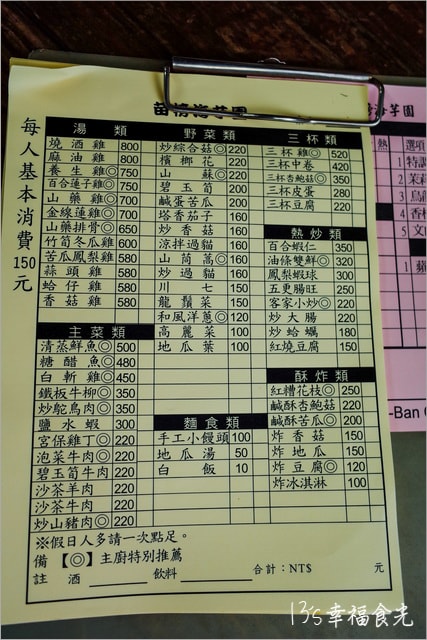 苗榜海芋園
海芋園
每人基本消費150元
湯類
燒酒雞 800
麻油雞 800
養生雞◎ 750
百合蓮子雞◎ 750
山藥雞◎ 700
金線蓮雞◎ 700
山藥排骨◎ 650
竹筍冬瓜雞 600
苦瓜鳳梨雞 580
蒜頭雞 580
蛤仔雞 580
香菇雞 580
主菜類
清蒸鮮魚◎ 500
糖醋魚◎ 480
白斬雞◎ 450
鐵板牛柳◎ 350
炒鴕鳥肉◎ 350
鹽水蝦 300
宮保雞丁◎ 220
泡菜牛肉◎ 220
碧玉筍牛肉 220
沙茶羊肉 220
沙茶牛肉 220
炒山豬肉◎ 220
野菜類
炒綜合菇◎ 220
檳榔花 220
山蘇◎ 220
碧玉筍 200
鹹蛋苦瓜 200
塔香茄子 160
炒香菇 160
涼拌過貓 160
山茼萵◎ 160
炒過貓 160
川七 150
龍鬚菜 150
和風洋蔥◎ 120
高麗菜 100
地瓜葉 100
麵食類
手工小饅頭 100
地瓜湯 50
白飯 10
三杯類
三杯雞◎ 520
三杯中卷 420
三杯杏鮑菇◎ 350
三杯皮蛋 280
三杯豆腐 220
熱炒類
百合蝦仁 350
油條雙鮮◎ 320
鳳梨蝦球 300
五更腸旺 250
客家小炒◎ 220
炒大腸 220
炒蛤蠣 180
紅燒豆腐 150
酥炸類
紅糟花枝◎ 250
鹹酥杏鮑菇 220
鹹酥苦瓜◎ 200
炸香菇 150
炸地瓜 150
炸豆腐◎ 120
炸冰淇淋 100
※假日人多請一次點足。
備註【◎】主廚特別推薦
酒 飲料 合計：NT$ 元
熱 選項
1 特調
2 茉莉
3 烏龍
4 香
5 文山
-Ban
13's幸福食光